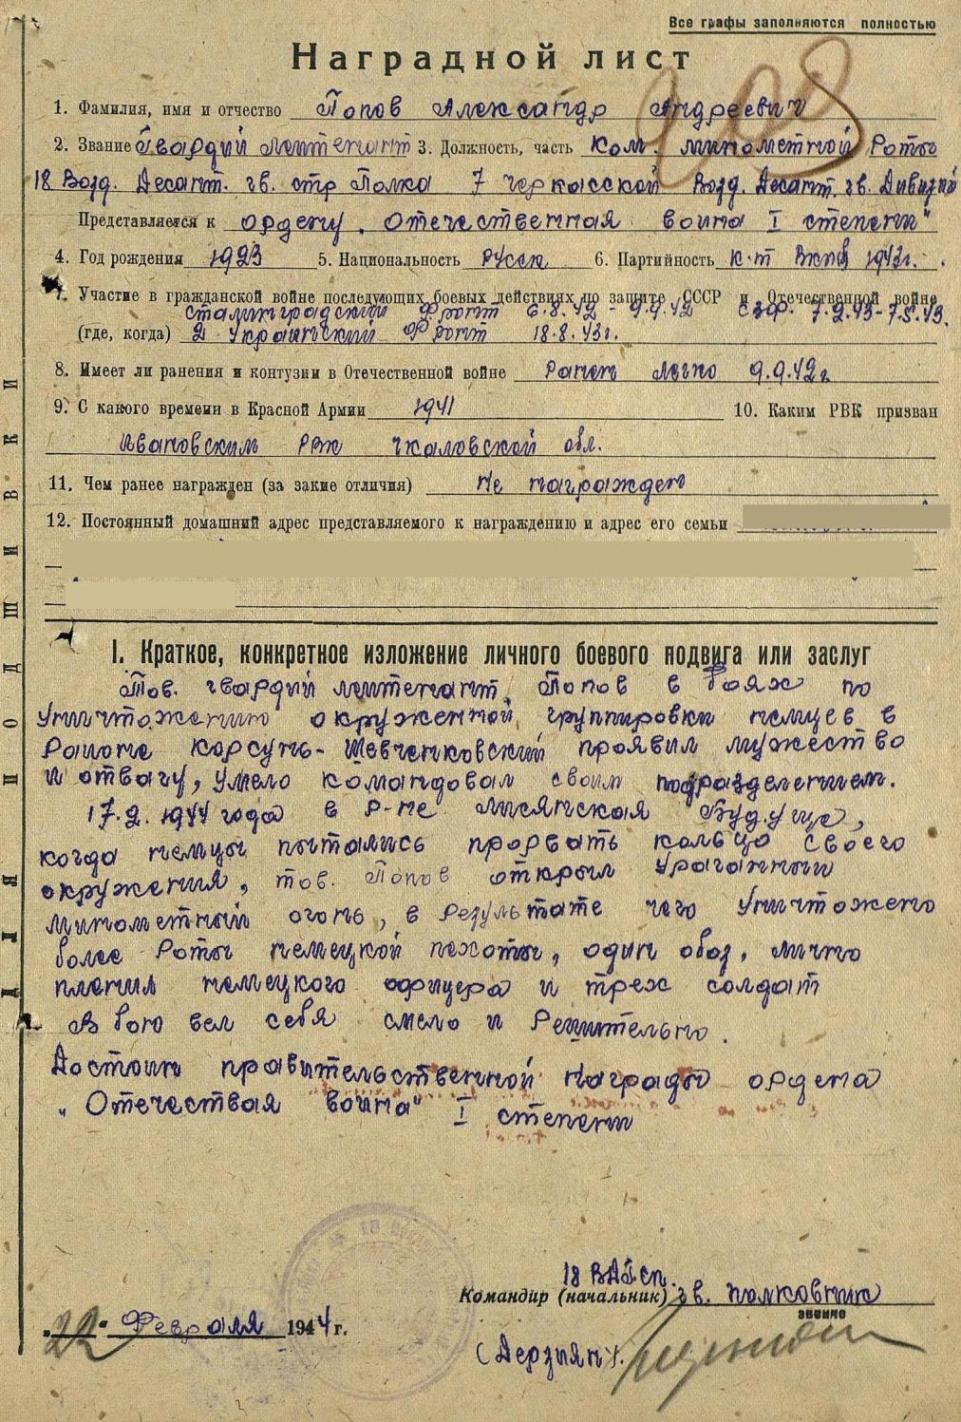 Все графы заполняются полностью
Наградной лист
1. Фамилия, имя и отчество Попов Александр Андреевич
2. Звание Гвардий лейтенант 3. Должность, часть Ком. минометной Роты
18 Возд. Десант. гв. стр Полка 7 Черкасской Возд. Десант. гв. Дивизии
Представляется к ордену „Отечественная война I степени"
4. Год рождения 1923 5. Национальность Русск 6. Партийность к-т ВКПб 1943г.
7. Участие в гражданской войне последующих боевых действиях по защите СССР и Отечественной войне
Сталинградский Фронт 6.8.42 - 9.9.42 СЗФ. 7.2.43-7.5.43.
(где, когда) 2 Украинский Фронт 18.8.43г.
8. Имеет ли ранения и контузии в Отечественной войне Ранен легко 9.9.42г
9. С какого времени в Красной Армии 1941 10. Каким РВК призван
Ивановским РВК Чкаловской обл.
11. Чем ранее награжден (за какие отличия) Не награжден
12. Постоянный домашний адрес представляемого к награждению и адрес его семьи
I. Краткое, конкретное изложение личного боевого подвига или заслуг
Тов. гвардий лейтенант Попов в Боях по
Уничтожению окруженной группировки немцев в
Районе Корсунь-Шевченковский проявил мужество
и отвагу, умело командовал своим подразделением.
17.2.1944 года в Р-не Лисянская Буд.ище,
когда немцы пытались прорвать кольцо своего
окружения, тов. Попов открыл Ураганный
минометный огонь, в Результате чего Уничтожено
более Роты немецкой пехоты, один обоз, лично
пленил немецкого офицера и трех солдат
В бою вел себя смело и Решительно.
Достоин правительственной Награды ордена
„Отечествая война" I степени
18 ВДГСП.
Командир (начальник) гв. полковник
звание
22 Февраля 1944 г.
(Дерзиян).
Для подшивки